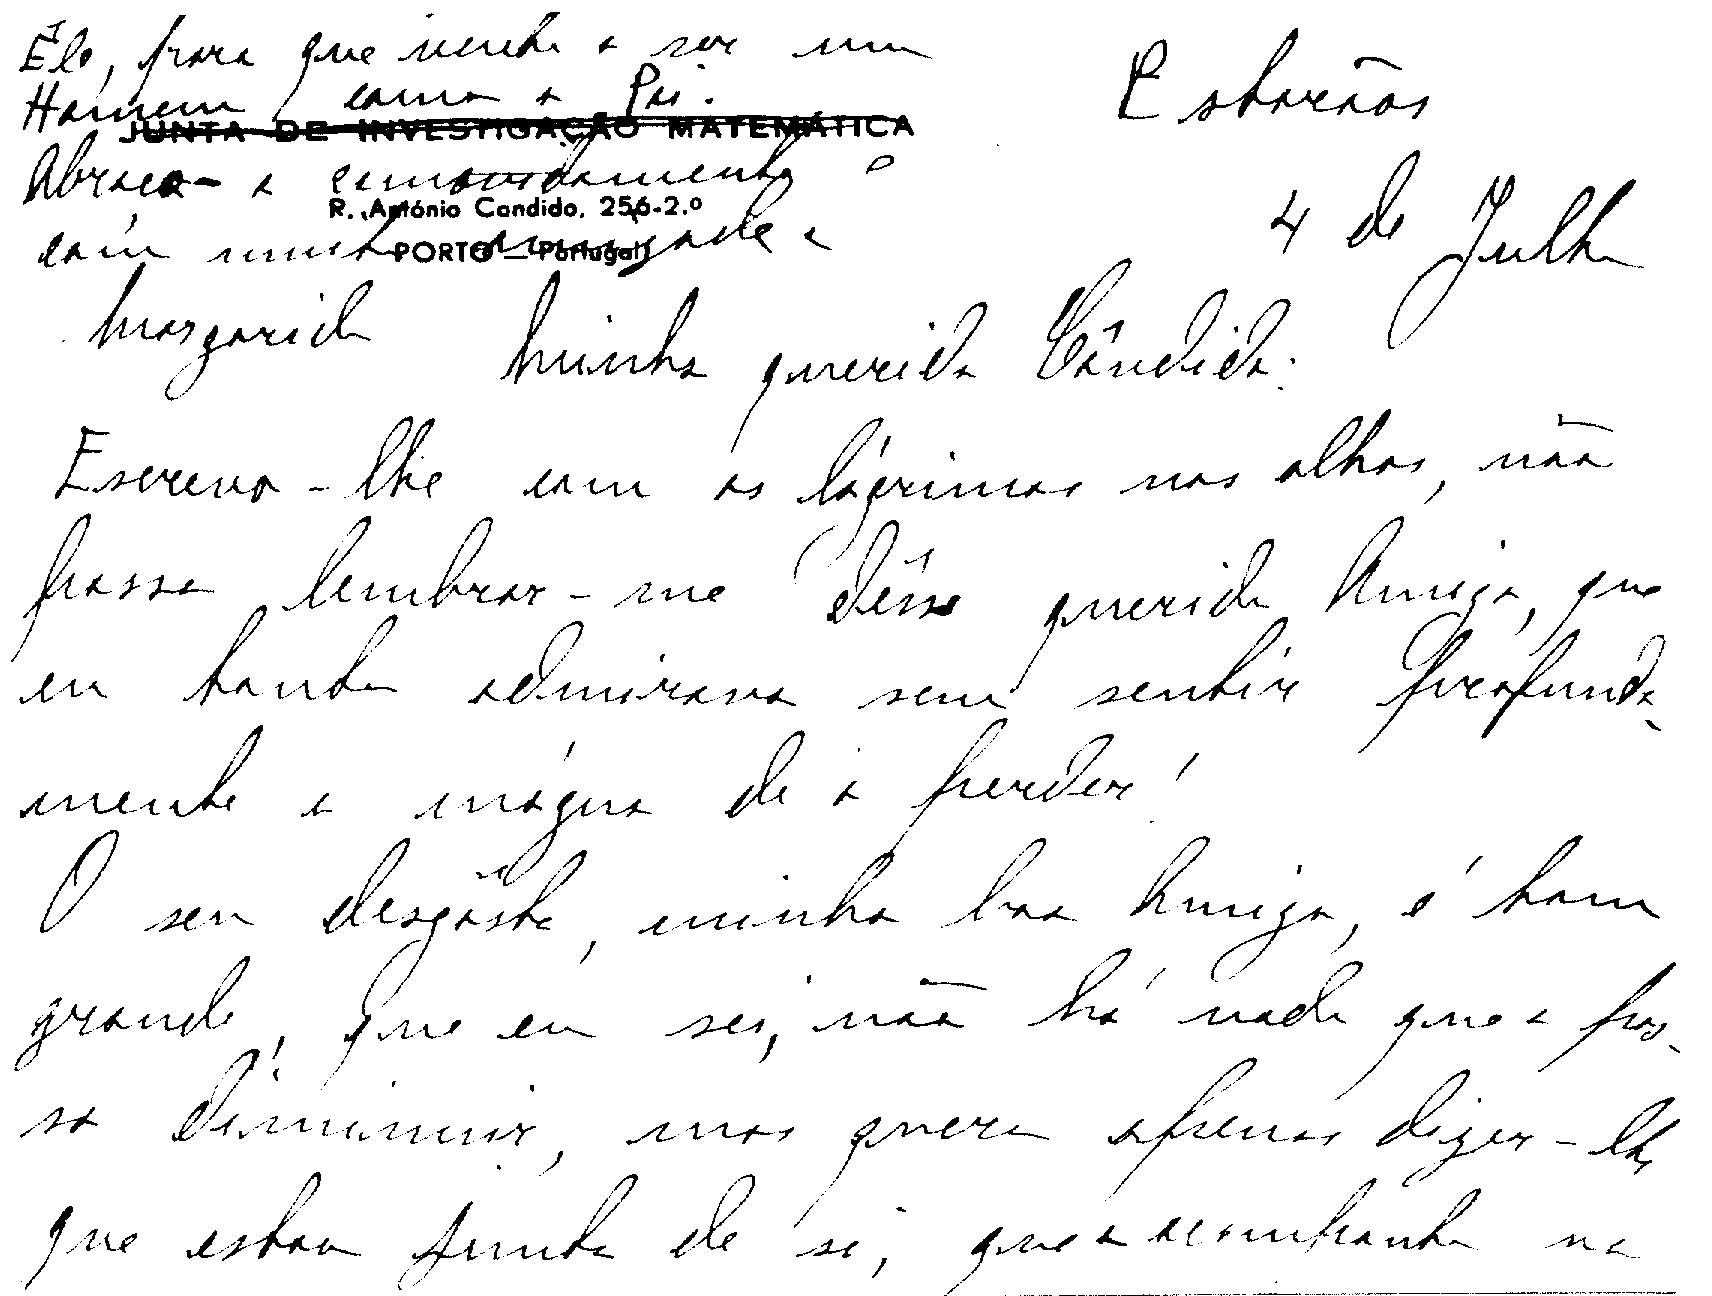 Êle, para que venha a ser um
Homem como o Pai.
JUNTA DE INVESTIGAÇÃO MATEMÁTICA
Abraça-a comovidamente e
R. António Candido, 256-2.º
com muita amizade a
PORTO — Portugal
Margarida
Estorãos
4 de Julho
Minha querida Cândida:
Escrevo-lhe com as lágrimas nos olhos, não
posso lembrar-me dêsse querido Amigo, que
eu tanto admirava sem sentir profunda-
mente a mágua de o perder!
O seu desgôsto, minha boa Amiga, é tam
grande, que eu sei, não há nada que o pos-
sa diminuir, mas quero apenas dizer-lhe
que estou junto de si, que a acompanho na